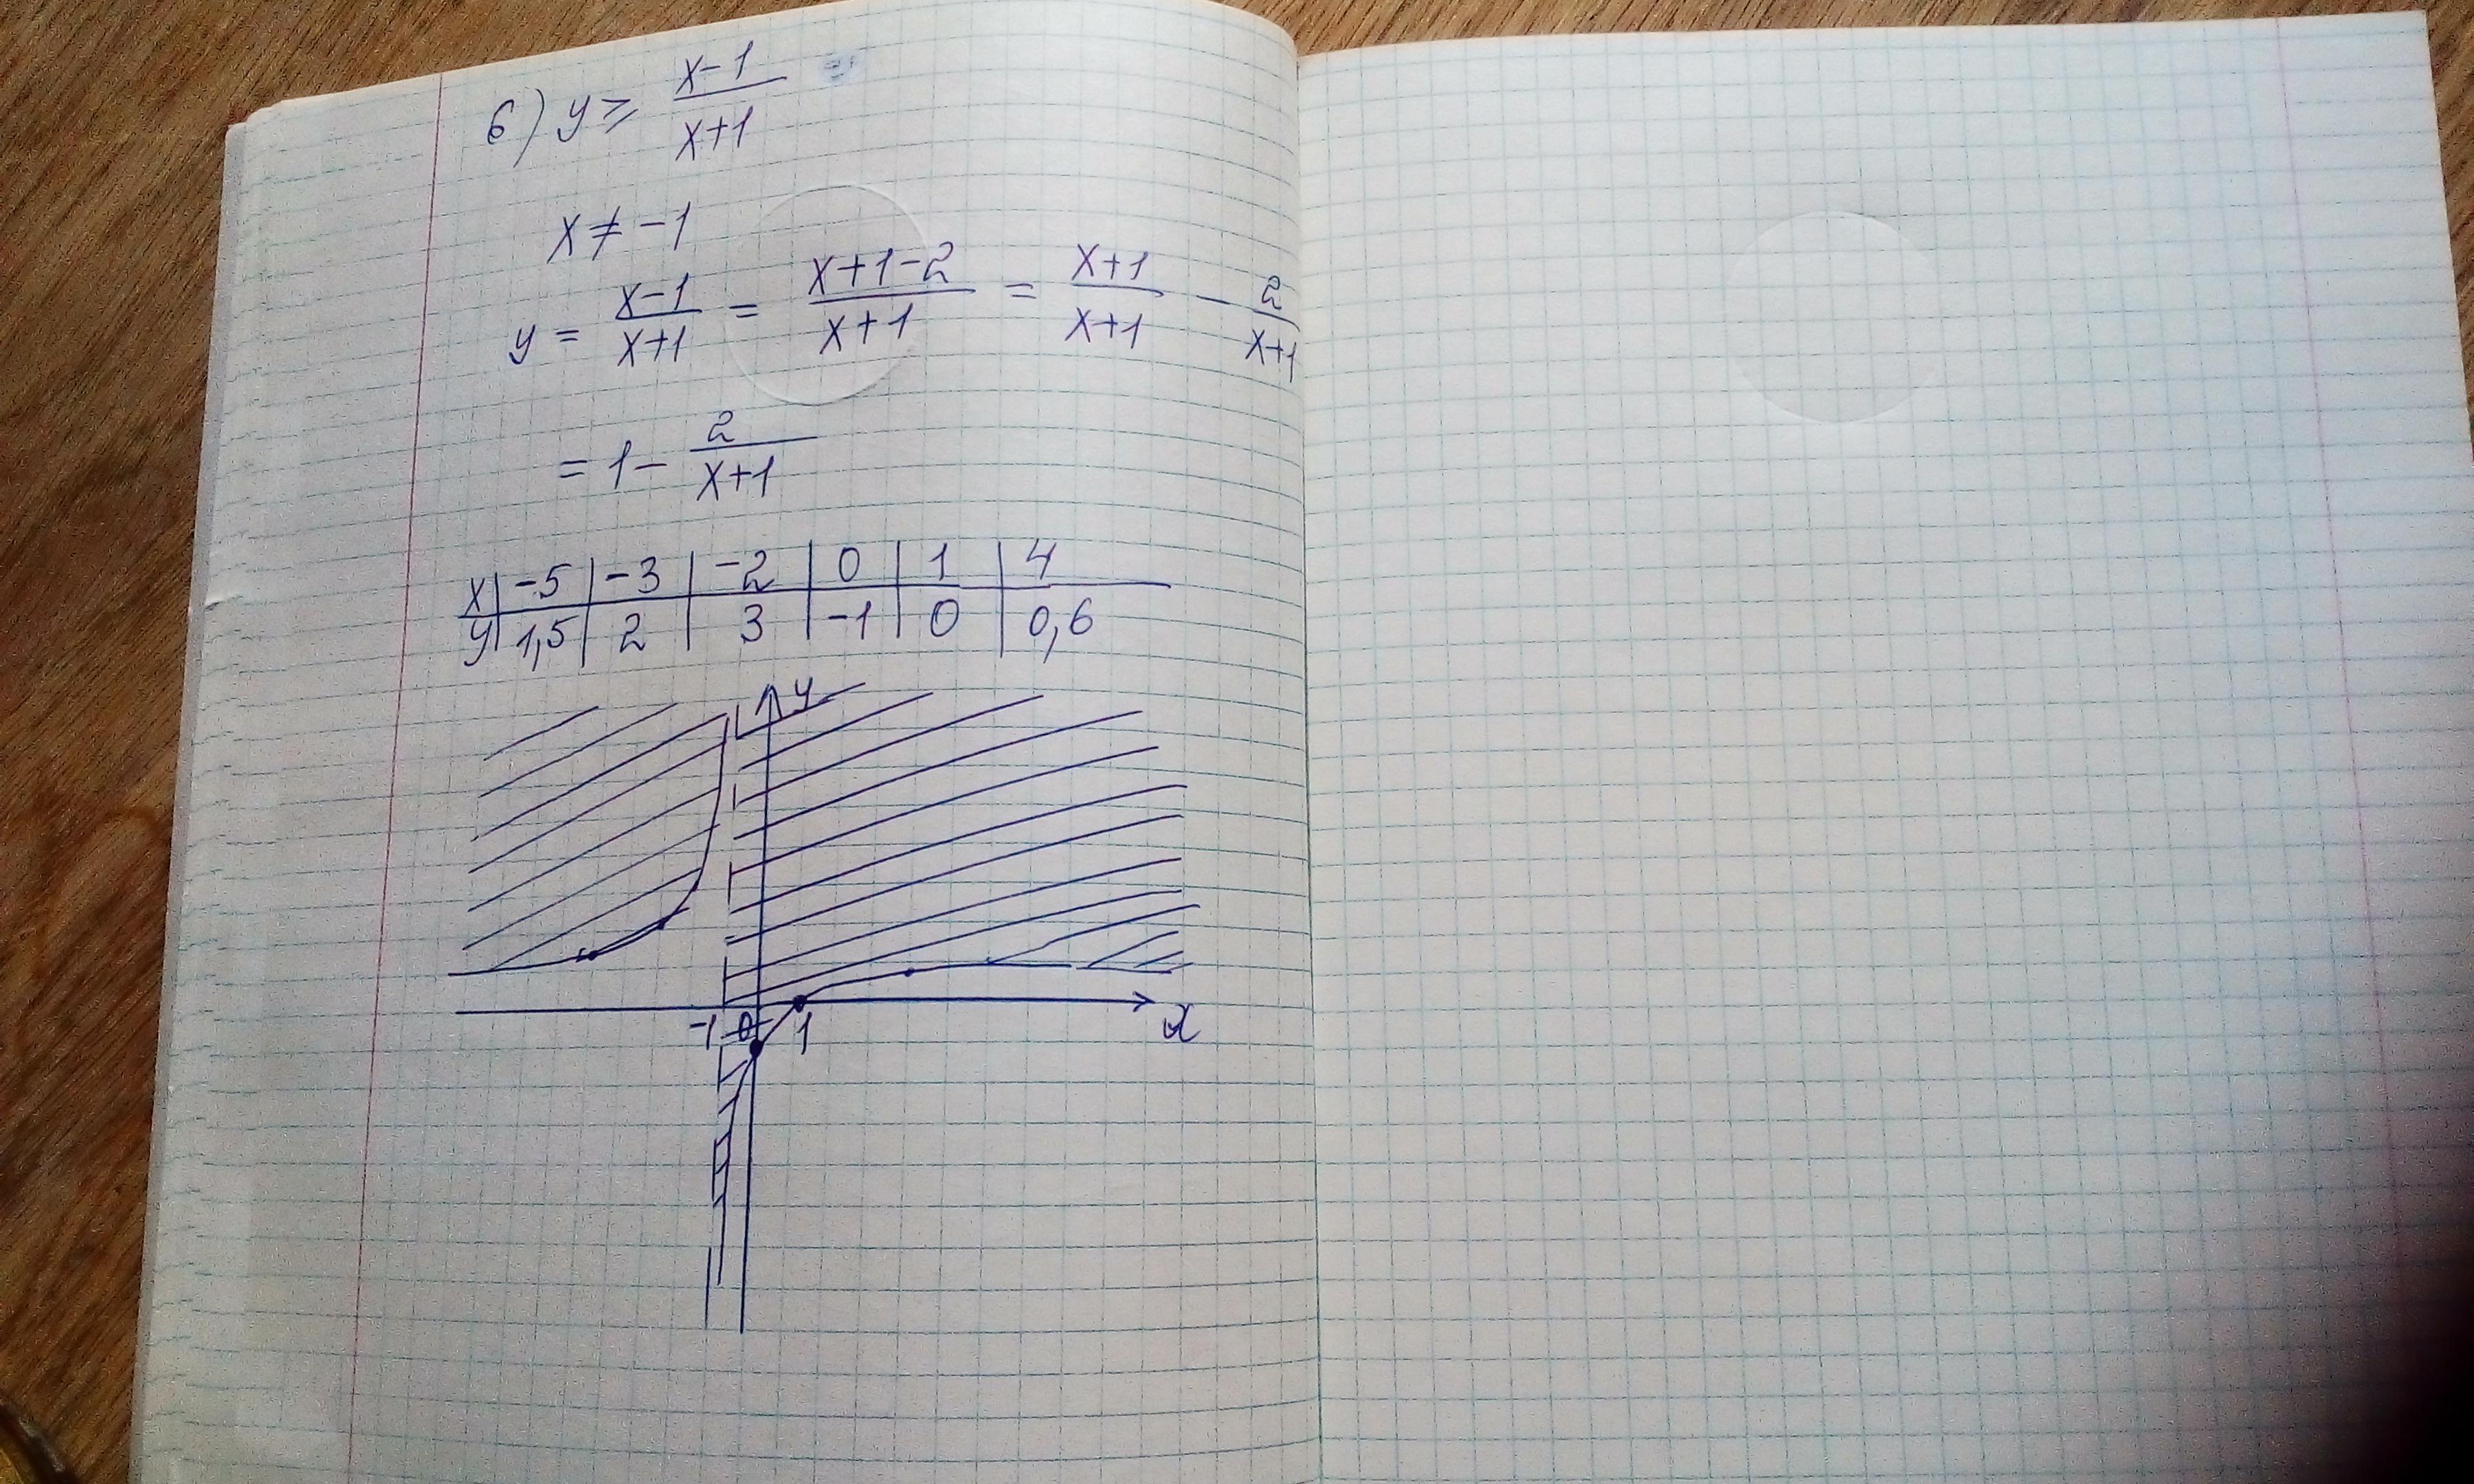 б) y ≥ x-1 / x+1
x ≠ -1
y = x-1 / x+1 = x+1-2 / x+1 = x+1 / x+1 - 2 / x+1
= 1 - 2 / x+1
x | -5 | -3 | -2 | 0 | 1 | 4
y | 1,5 | 2 | 3 | -1 | 0 | 0,6
y
-1 0 1 x